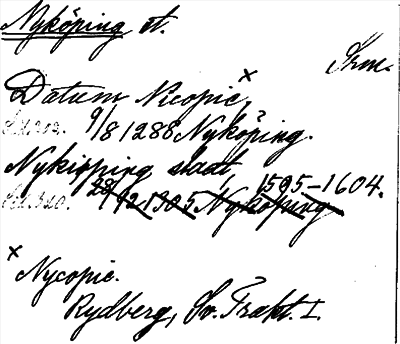 Nyköping st.
Srm.
Datum Nicopie, x
9/8 1288 Nyköping.
Nykiøping stadt
1595-1604.
28/12 1305 Nyköping
x
Nycopie.
Rydberg, Sv. Trakt. I.